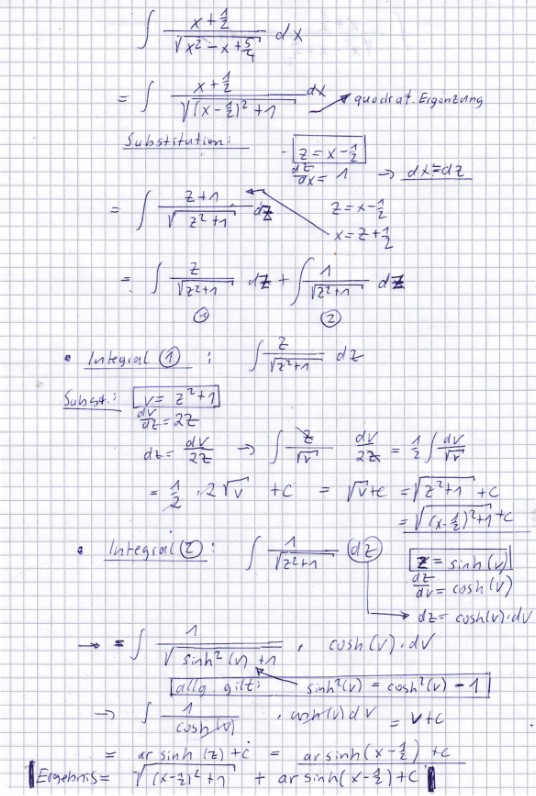 ∫ (x+1/2)/√(x²-x+5/4) dx
= ∫ (x+1/2)/√((x-1/2)²+1) dx → quadrat. Ergänzung
Substitution: z = x-1/2
dz/dx = 1 → dx=dz
= ∫ (z+1)/√(z²+1) dz z = x-1/2
x = z+1/2
= ∫ z/√(z²+1) dz + ∫ 1/√(z²+1) dz
① ②
• Integral ① : ∫ z/√(z²+1) dz
Subst.: v = z²+1
dv/dz = 2z
dz = dv/2z → ∫ z/√v dv/2z = 1/2 ∫ dv/√v
= 1/2 · 2√v + C = √v+c = √(z²+1) + C
= √((x-1/2)²+1) + C
• Integral ② : ∫ 1/√(z²+1) dz z = sinh(v)
dz/dv = cosh(v)
dz = cosh(v)·dv
→ = ∫ 1/√(sinh²(v)+1) · cosh(v)·dv
allg. gilt: sinh²(v) = cosh²(v) - 1
→ ∫ 1/cosh(v) · cosh(v) dv = v+c
= arsinh(z) + c = arsinh(x-1/2) + c
Ergebnis = √((x-1/2)²+1) + arsinh(x-1/2) + C